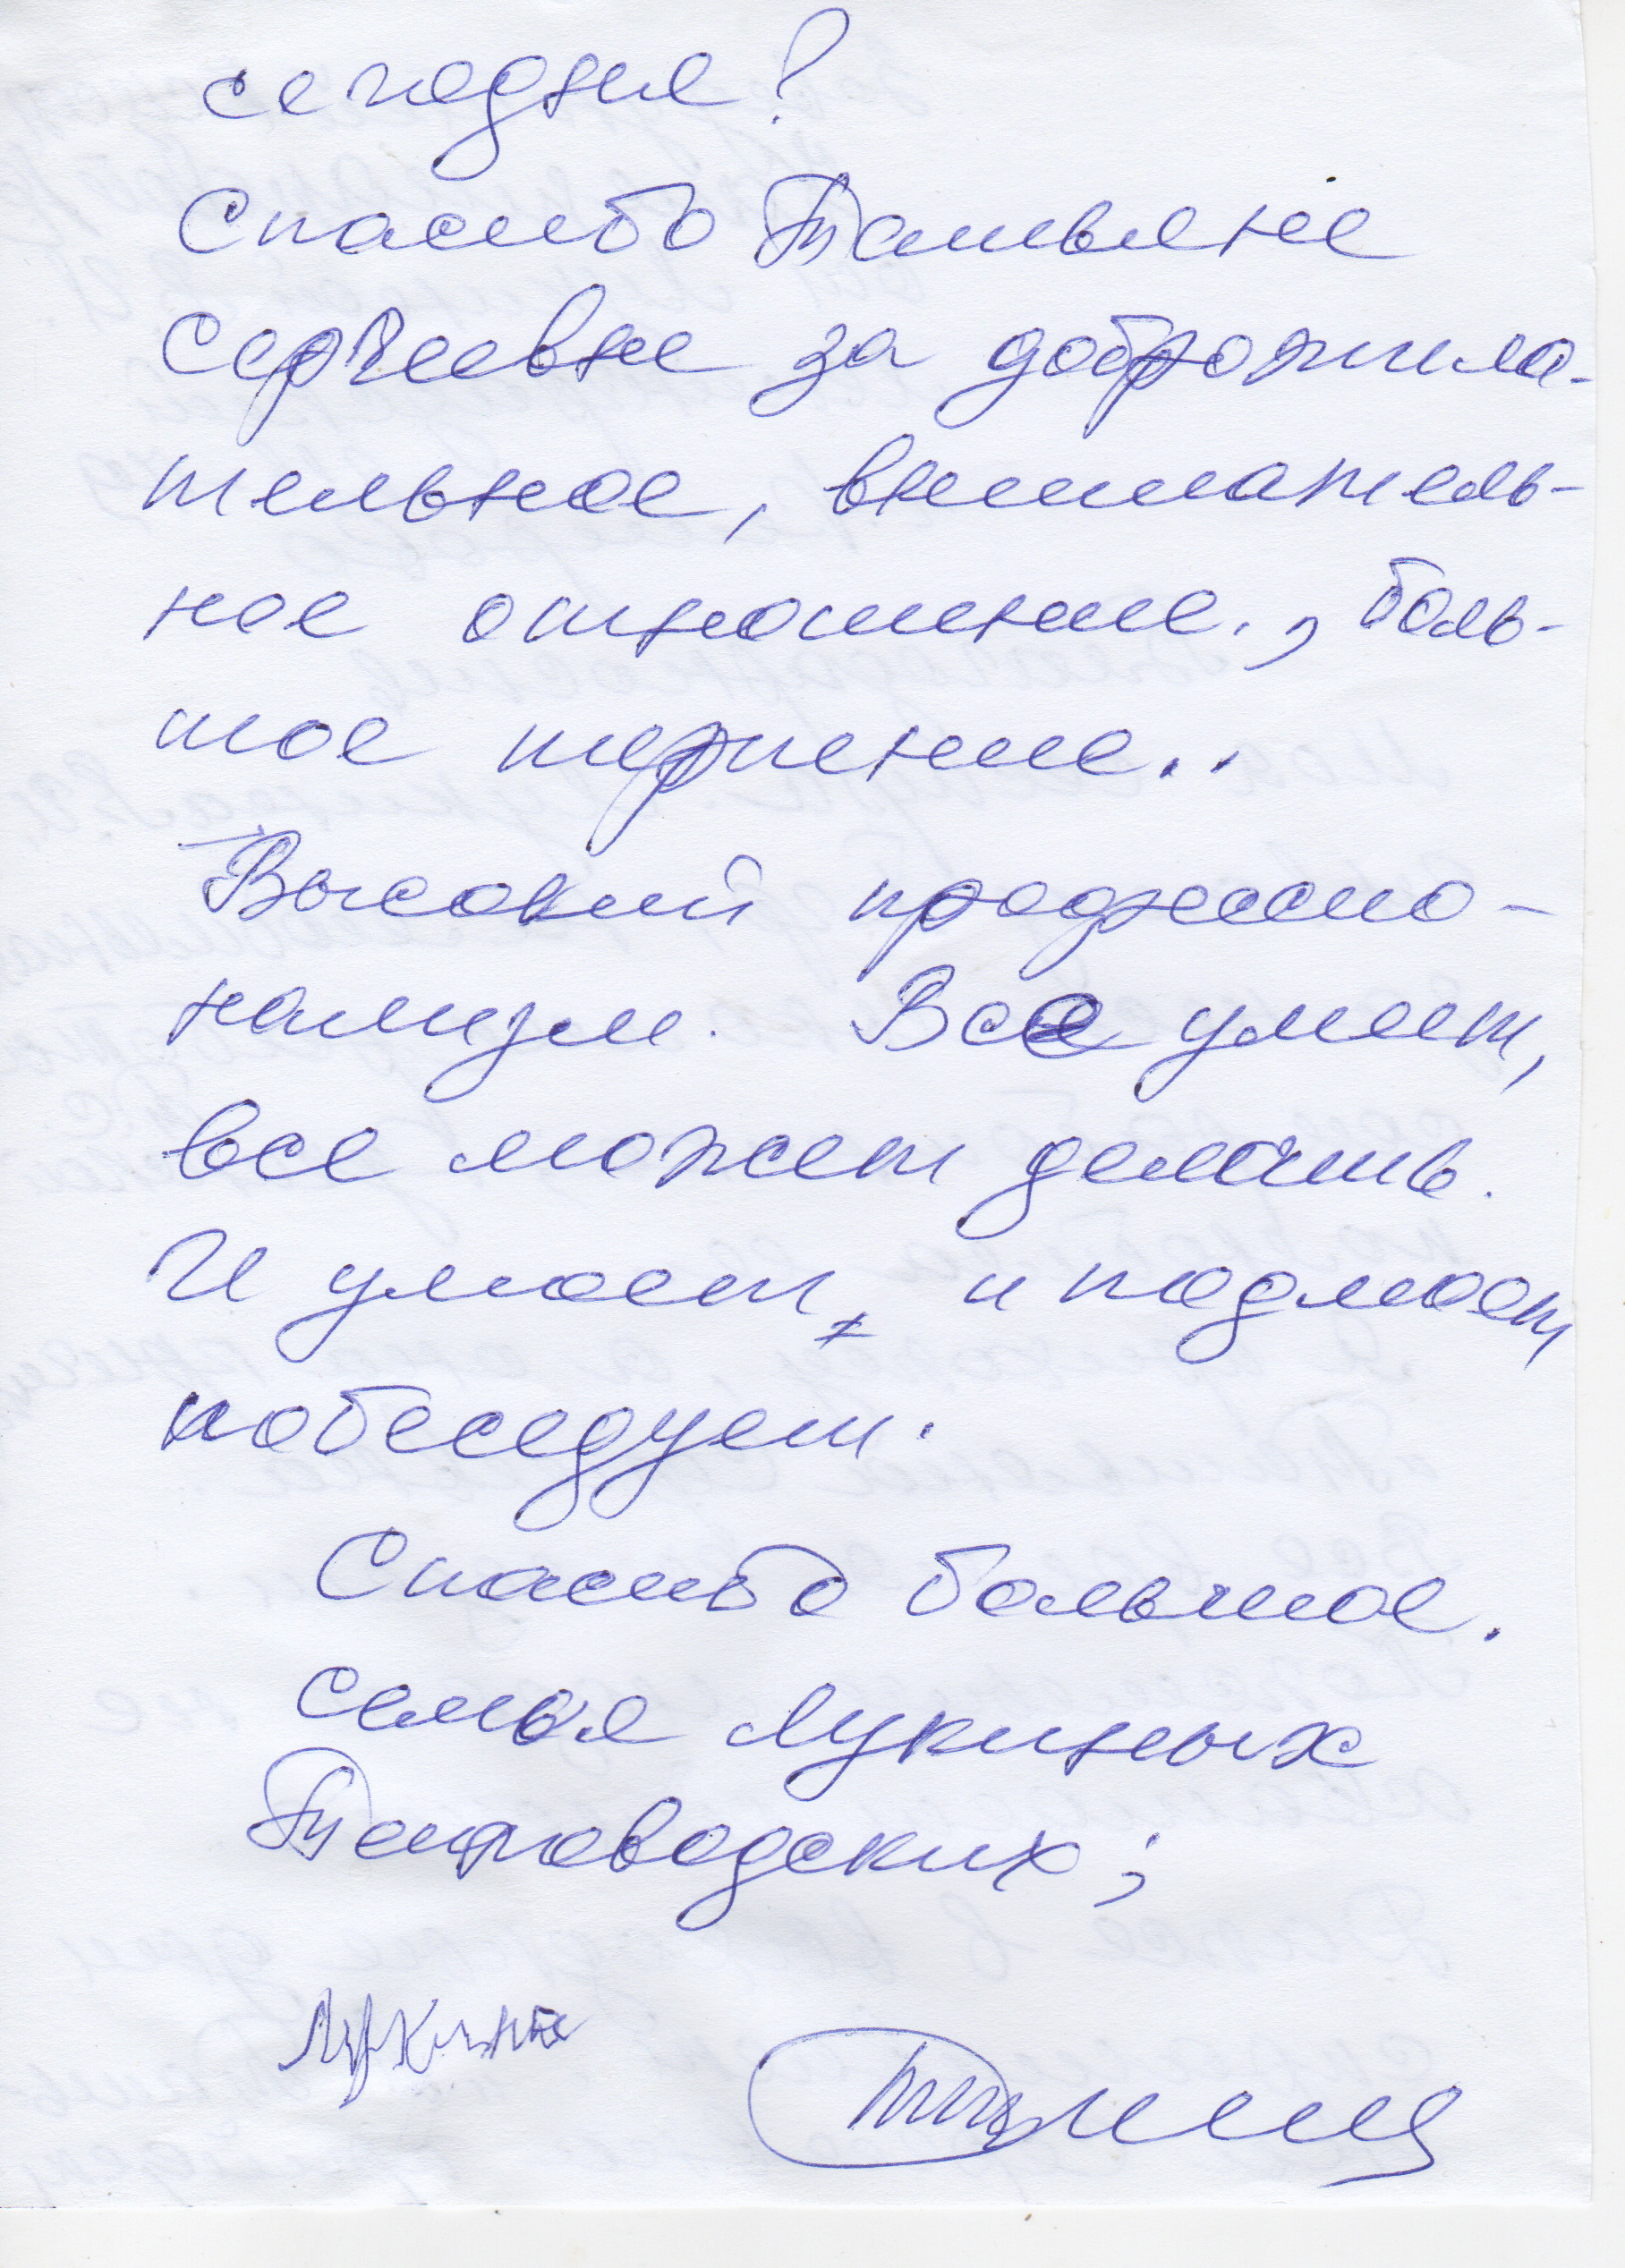 сегодня?
Спасибо Татьяне
Сергеевне за доброжела-
тельное, вниматель-
ное отношение., боль-
шое терпение..
Высокий професссио-
нализм. Все умеет,
все может делать.
И умоет, и подмоет
побеседует.
Спасибо большое.
семья Лукиных
Петроводских;
Лукина